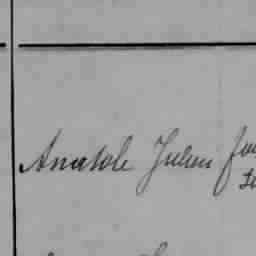 Anatole Julien